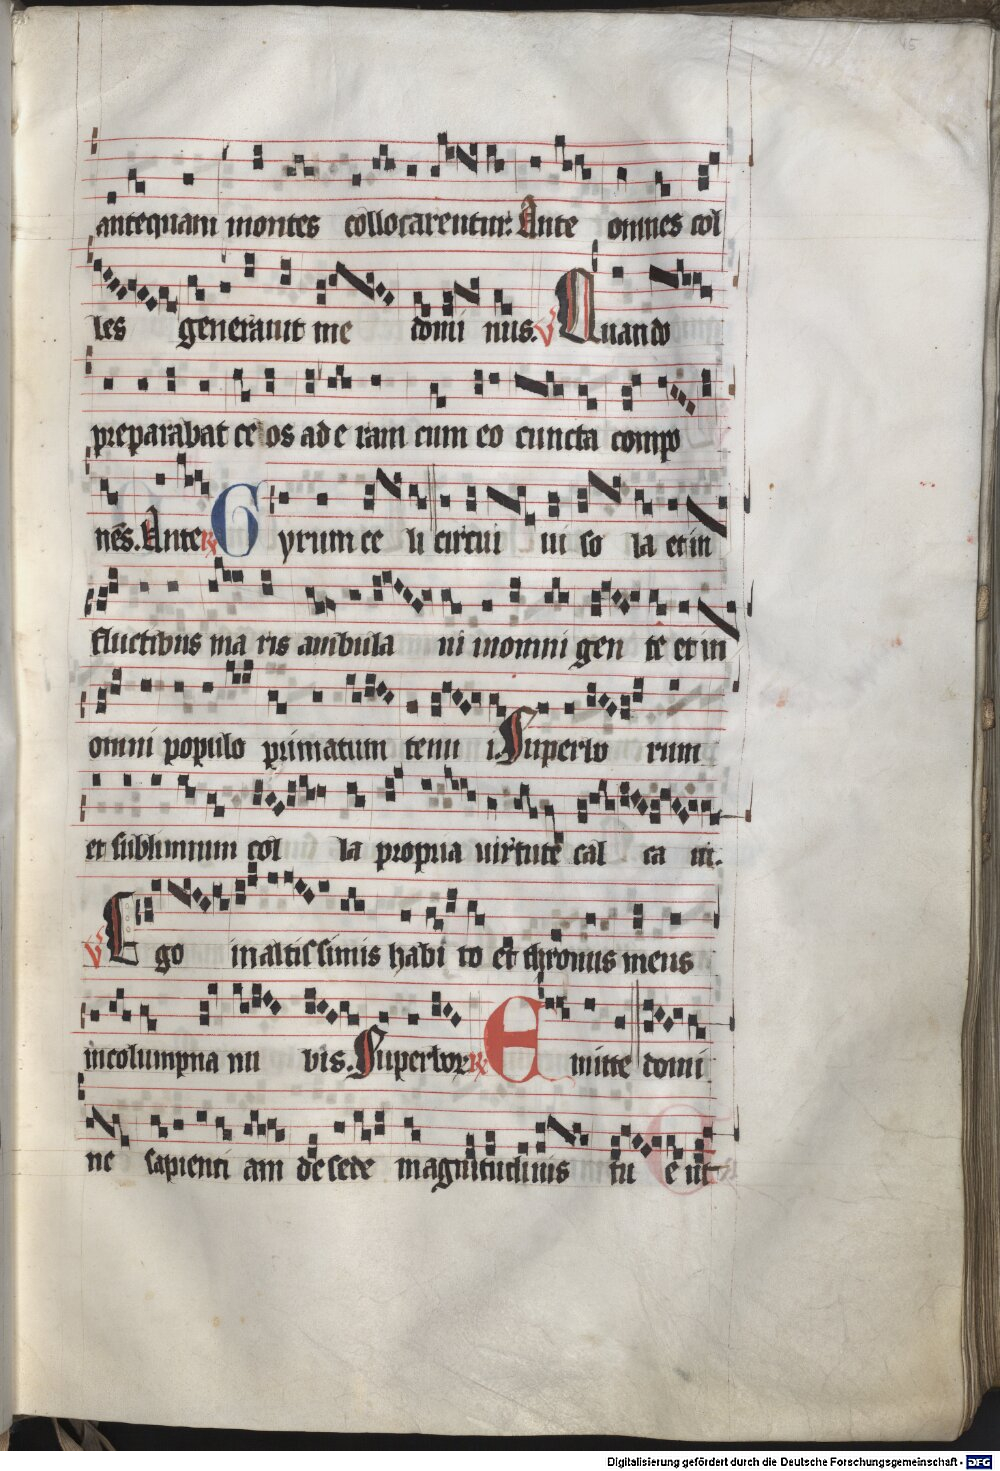 15
antequam montes collocarentur. Ante omnes col
les generauit me domi nus. V Quando
preparabat ce los ad e ram cum eo cuncta compo
nēs. Ante R Gyrum ce li circui ui so la et in
fluctibus ma ris ambula ui in omni gen te et in
omni populo primatum tenu i. Superbo rum
et sublimium col la propria uirtute cal ca ui.
V Ego in altissimis habi to et thronus meus
in columpna nu vis. Superbor R Emitte domi
ne sapienti am de sede magnitudinis tu e ut
Digitalisierung gefördert durch die Deutsche Forschungsgemeinschaft - DFG